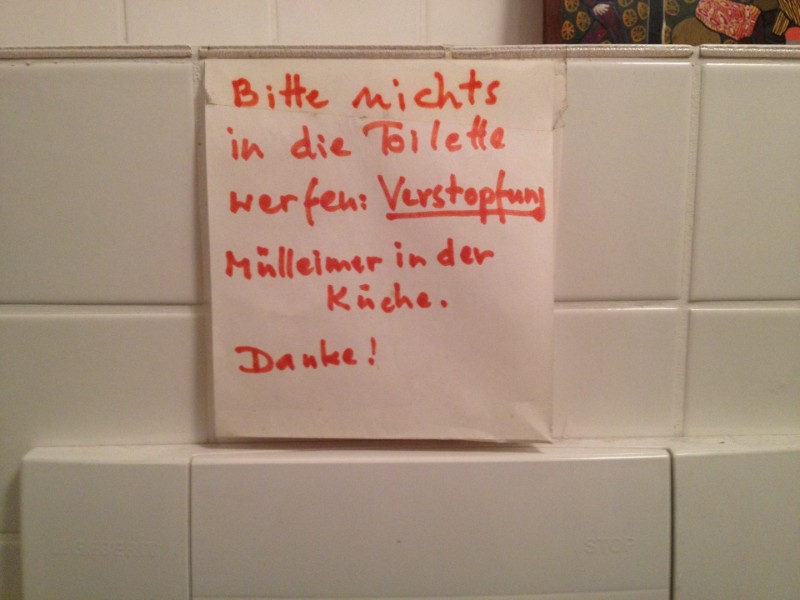 Bitte nichts
in die Toilette
werfen: Verstopfung
Mülleimer in der
Küche.
Danke!
GEBERIT
STOP